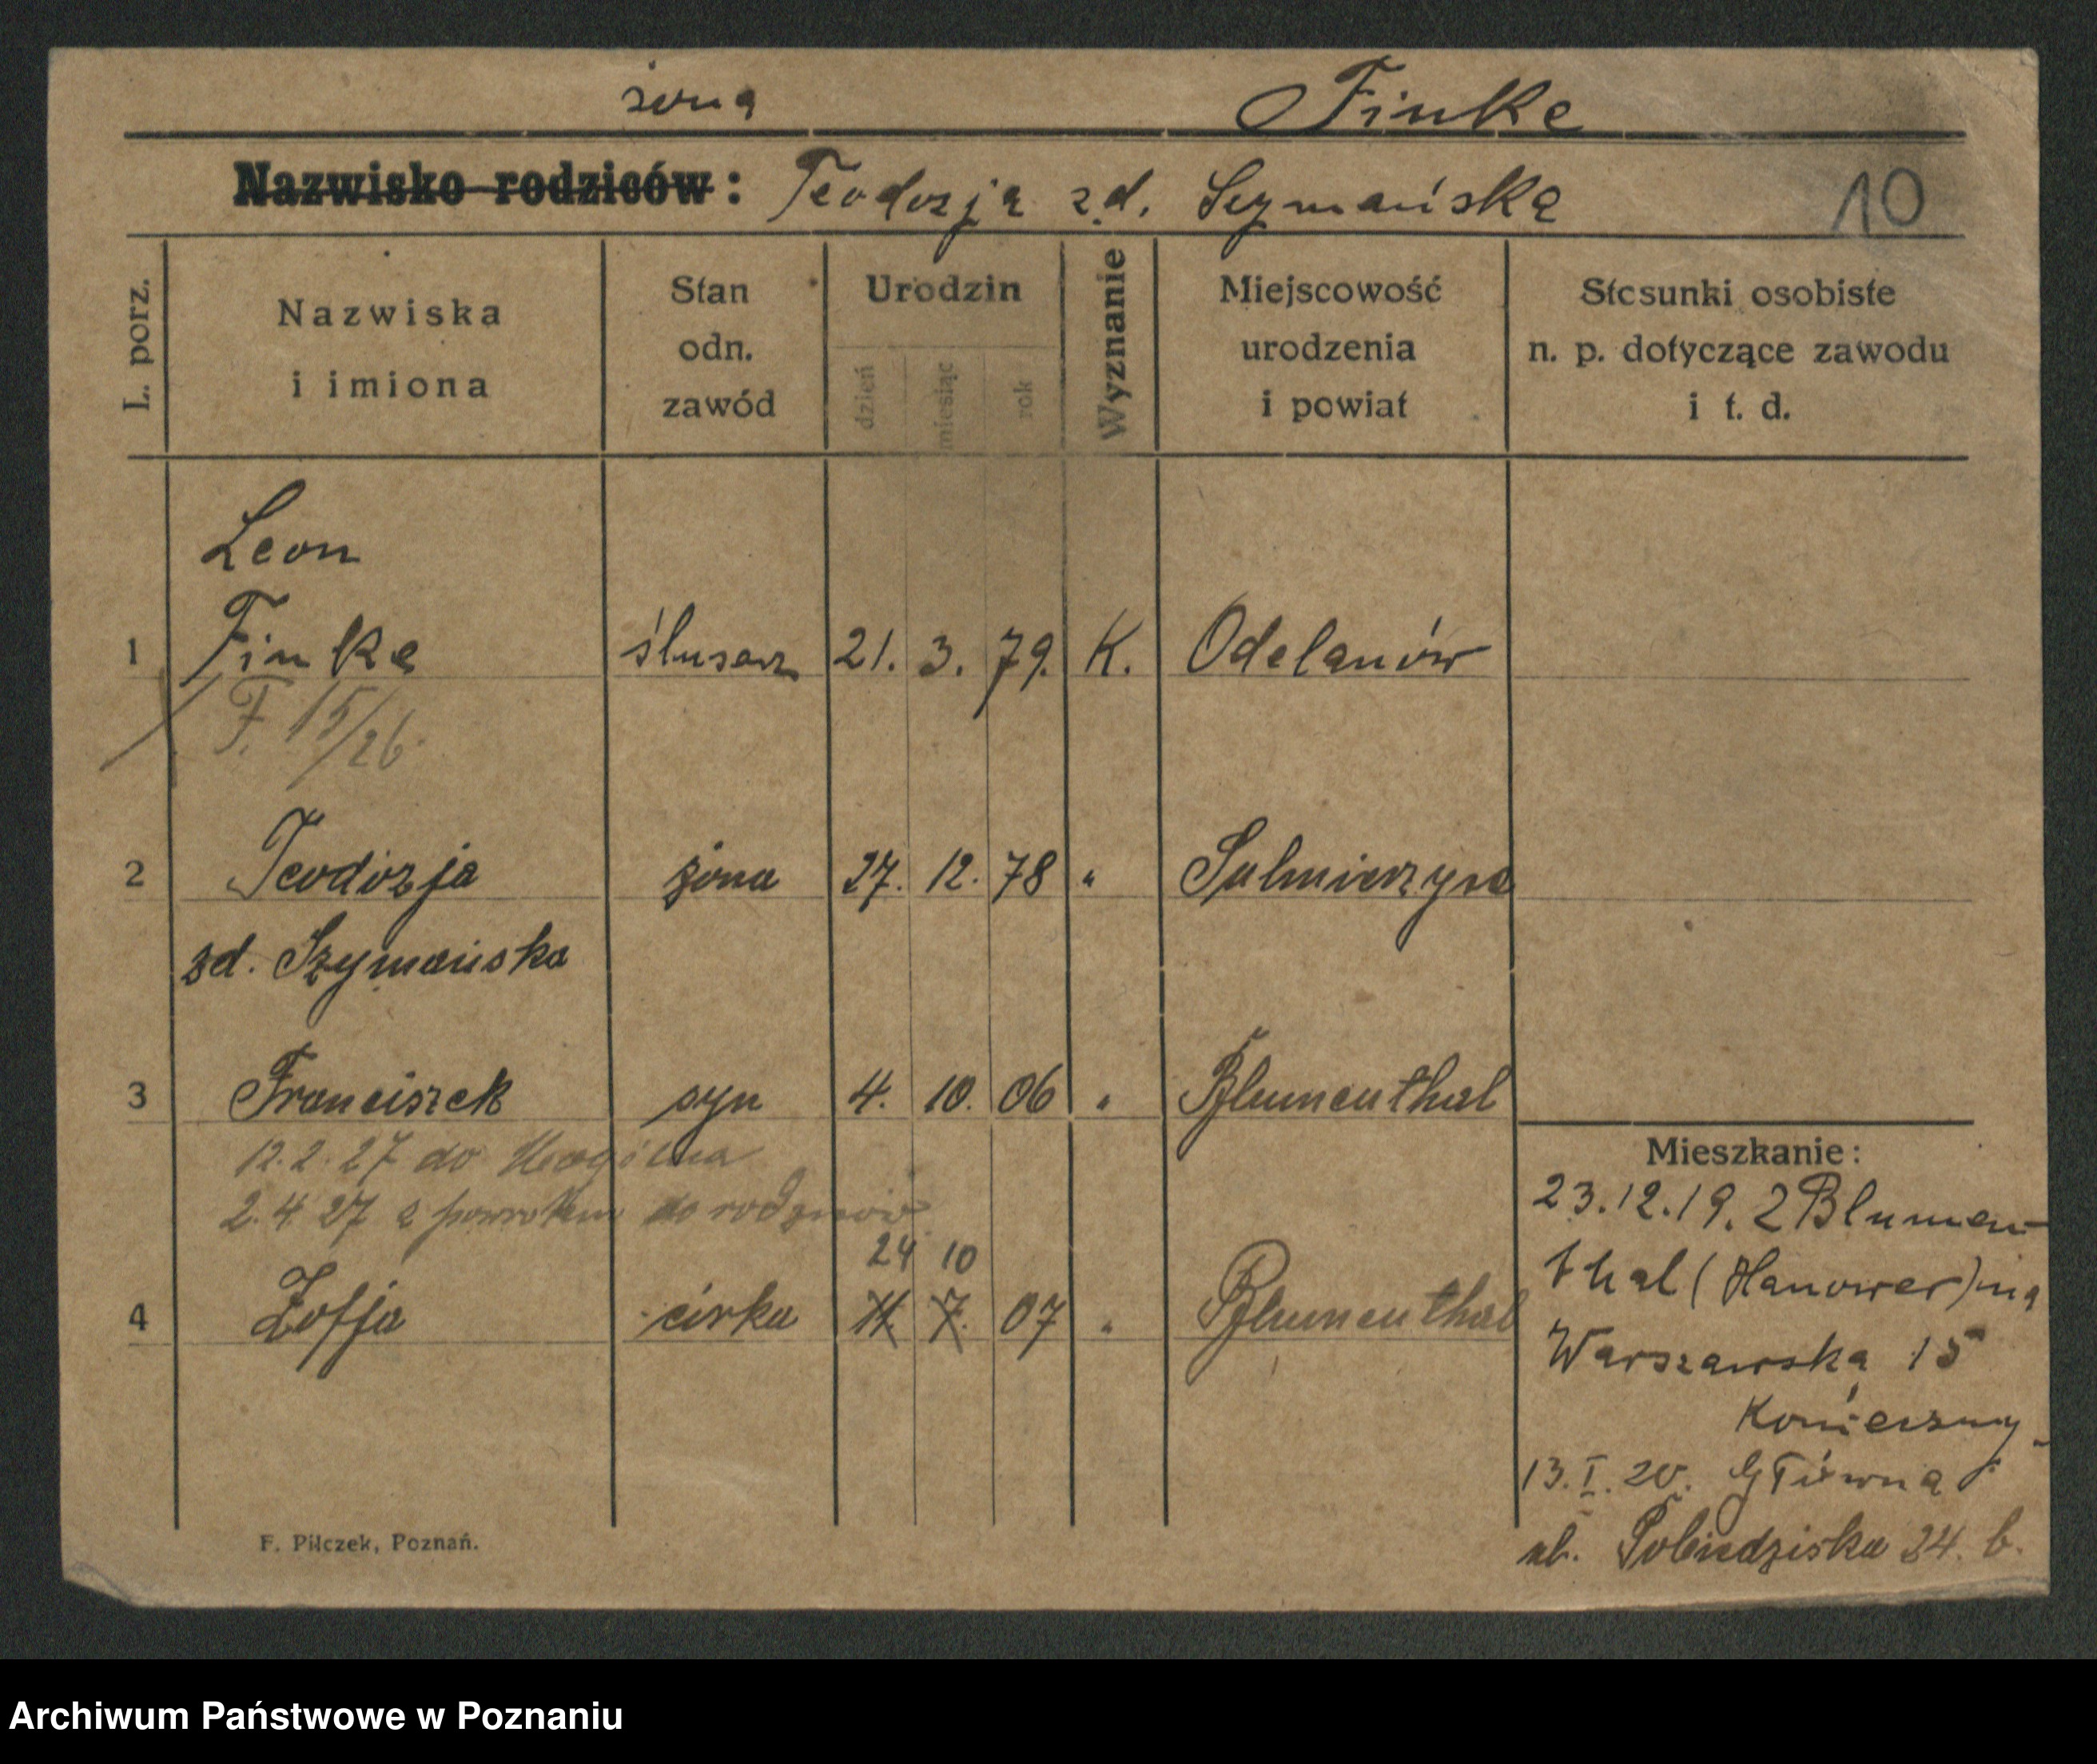 żona Finke
Nazwisko rodziców: Teodozja zd. Szymańska 10
L. porz.
Nazwiska
i imiona
Stan
odn.
zawód
Urodzin
dzień
miesiąc
rok
Wyznanie
Miejscowość
urodzenia
i powiat
Stosunki osobiste
n. p. dotyczące zawodu
i t. d.
Leon
1 Finke ślusarz 21. 3. 79. K. Odelanów
F. 15/26
2 Teodozja żona 27. 12. 78 " Sulmierzyce
zd. Szymańska
3 Franciszek syn 4. 10. 06 " Blumenthal
12.2.27 do
2.4.27 z powrotem do rodziców
24 10
4 Zofja córka 11. 7. 07 " Blumenthal
Mieszkanie:
23.12.19. z Blumen-
thal (Hanower) na
Warszawska 15
Konieczny
13.I.20. Główna
ul. Pobiedziska 24. b.
F. Pilczek, Poznań.
Archiwum Państwowe w Poznaniu